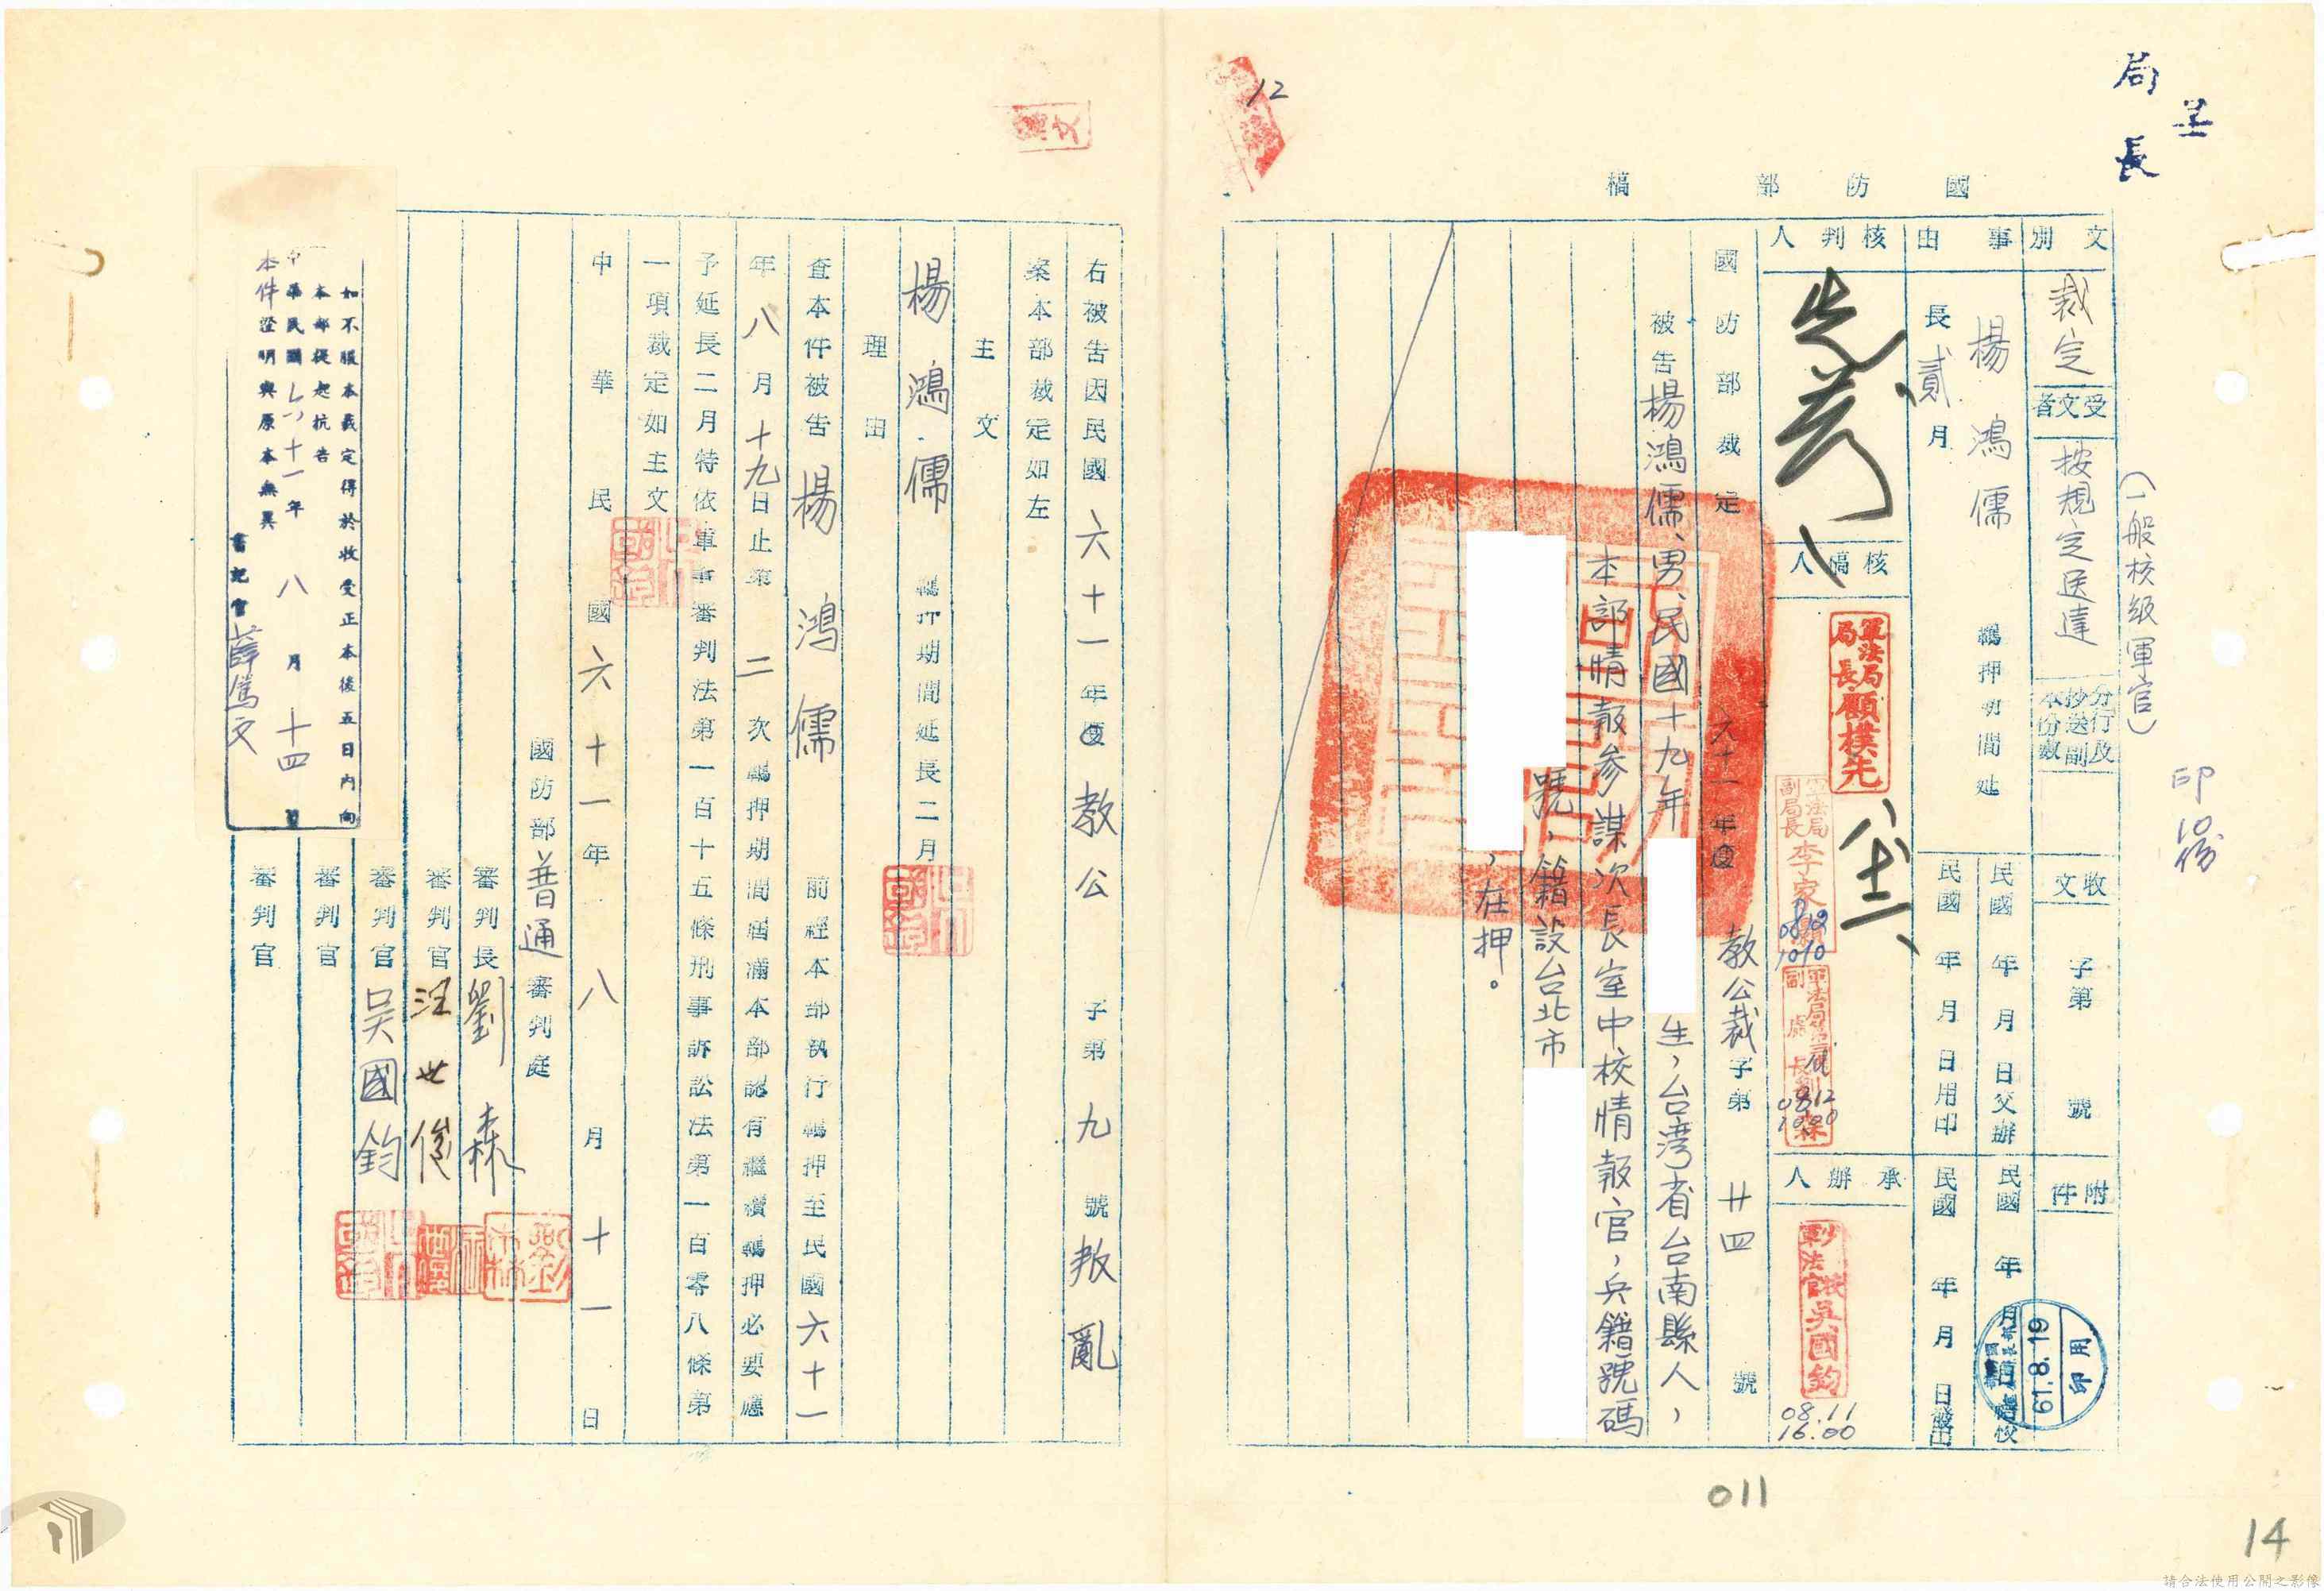 局長
國防部稿
(一般校級軍官)
文別
裁定
受文者
按規定送達
分行及抄送副本份數
收文
字第
號
附件
事由
楊鴻儒
羈押期間延
長貳月
民國 年 月 日交辦
民國 年 月 日用印
民國 年 月 日
民國 年 月 日發出
用印
61.8.19
核判人
核稿人
軍法局局長顧樸先
軍法局副局長李家
0812
1010
0812
1000
承辦人
軍法官吳國鈞
08.11
16.00
國防部裁定
六十一年度
教公裁字第廿四號
被告楊鴻儒、男、民國十九年
生,台湾省台南縣人,
本部情報參謀次長室中校情報官,兵籍號碼
號,籍設台北市
,在押。
011
14
12
右被告因民國六十一年度教公字第九號叛亂
案本部裁定如左
主文
楊鴻儒羈押期間延長二月
理由
查本件被告楊鴻儒前經本部執行羈押至民國六十一
年八月十九日止第二次羈押期間屆滿本部認有繼續羈押必要應
予延長二月特依軍事審判法第一百十五條刑事訴訟法第一百零八條第
一項裁定如主文
中華民國六十一年八月十一日
國防部普通審判庭
審判長劉森
審判官汪世俊
審判官吳國鈞
審判官
審判官
如不服本裁定得於收受正本後五日內向
本部提起抗告
中華民國六十一年八月十四日
本件證明與原本無異
書記官薛篤文
請合法使用公開之影像